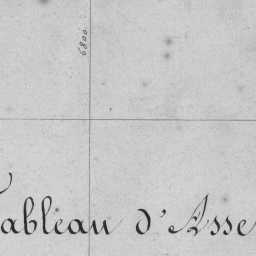 6800
Tableau d'Asse